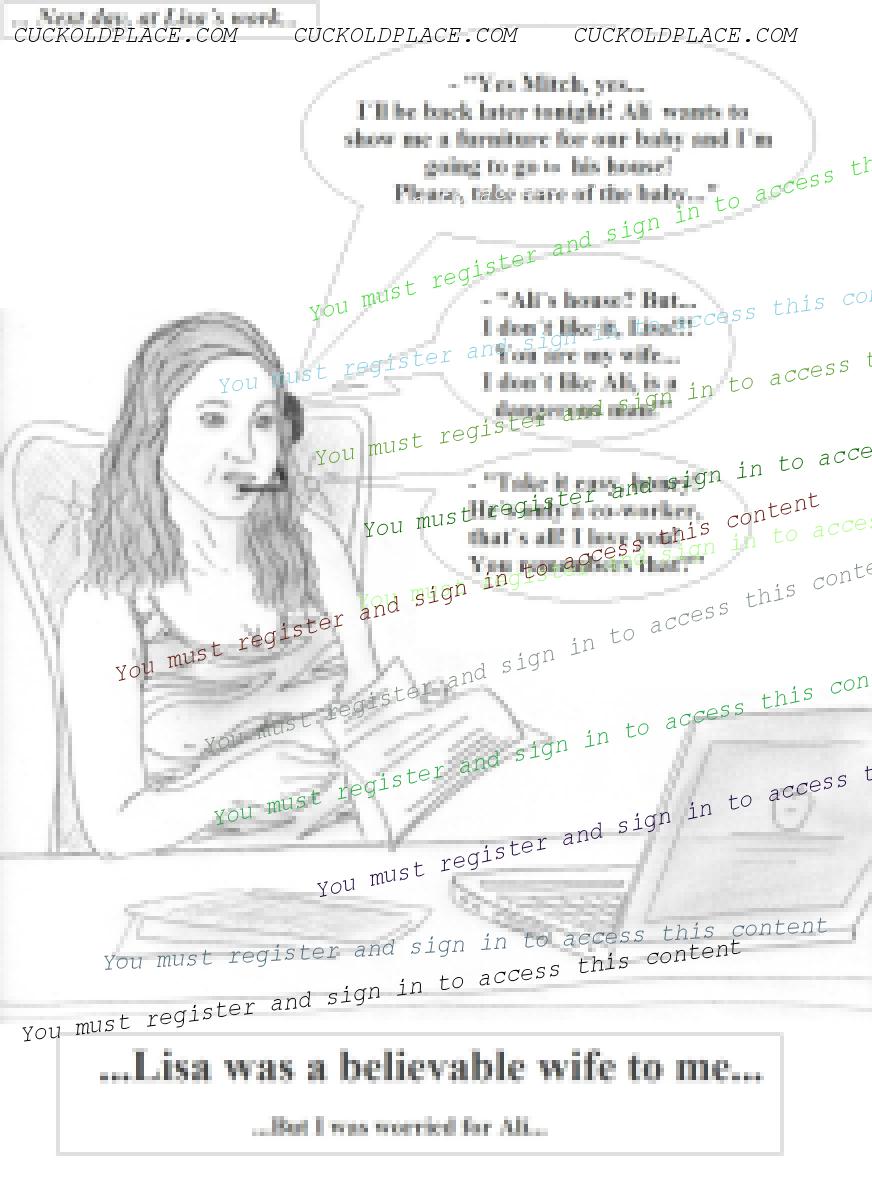 ... Next day, at Lisa's work...
CUCKOLDPLACE.COM CUCKOLDPLACE.COM CUCKOLDPLACE.COM
- "Yes Mitch, yes...
I'll be back later tonight! Ali wants to
show me a furniture for our baby and I'm
going to go to his house!
Please, take care of the baby..."
You must register and sign in to access th
- "Ali's house? But...
I don't like it, Lisa!!!
You are my wife...
I don't like Ali, is a
dangerous man!"
You must register and sign in to access this co
You must register and sign in to access t
- "Take it easy,
a co-worker,
that's all! I love
You must register and sign in to acce
You must register and sign in to access this content
You must register and sign in to acces
You must register and sign in to access this conte
You must register and sign in to access this con
You must register and sign in to access t
You must register and sign in to access this content
You must register and sign in to access this content
...Lisa was a believable wife to me...
...But I was worried for Ali...